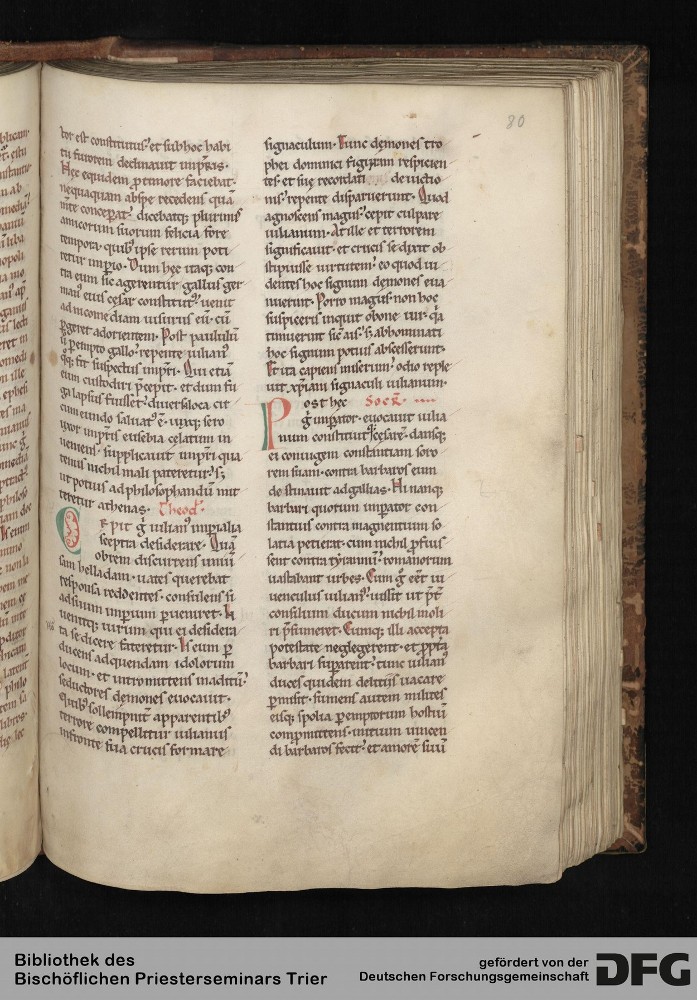 80
tor est constitutus; et sub hoc habi
tu furorem declinauit impr̄is.
Hęc equidem ꝓ timore faciebat.
nequaquam ab spe recedens quā
mente conceperat; dicebatq; plurimis
amicorum suorum felicia fore
tempora. quib; ipse rerum poti
retur imꝑio. Dum hęc itaq; con
tra eum sic agerentur gallus ger
man; eius cęsar constitut; uenit
ad nicomediam uisurus eū. cū
ꝑgeret ad orientem. Post paululū
ū ꝑempto gallo; repente iulian;
q;q; fit suspectus impr̄i. Qui etiā
eum custodiri p̄cepit. et dum fu
ga lapsus fuisset; diuersa loca cir
cumeundo saluat; ē. uixq; sero
uxor impr̄is eusebia celatum in
ueniens. supplicauit impr̄i qua
tenus nichil mali pateretur; s;
ut potius ad philosophandū mit
teretur athenas. Theod.
Cępit g̊ iulian; imꝑialia
sceptra desiderare. Quā
obrem discurrens uniū
sam helladam. uates querebat
responsa reddentes. consulens si
ad suum imꝑium ꝑueniret. H
uenitq; uirum qui ei desidera
ta se dicere fateretur. H eum ꝑ
ducens ad quendam idolorum
locum. et intromittens in aditū;
seductores demones euocauit.
quib; sollempnit̄ apparentib;
terrore compellitur iulianus
in fronte sua crucis formare
signaculum. Tunc demones tro
phei dominici figuram respicien
tes. et suę recordati deuictio
nis; repente disparuerunt. Quod
agnoscens magus; cepit culpare
iulianum. At ille et terrorem
significauit. et crucis se dixit ob
stipuisse uirtutem; eo quod ui
dentes hoc signum demones eua
nuerint. Porro magus; non hoc
suspiceris inquit o bone uir. q̄a
timuerint sic ais; s; abhominati
hoc signum potius abscesserunt.
Et ita capiens miserum; odio reple
uit xp̄iani signaculi iulianum.
Post hęc Socr̄.
g̊ imꝑator. euocauit iulia
num constituitq; cęsarē. dansq;
ei coniugem constantiam soro
rem suam. contra barbaros eum
destinauit ad gallias. Hi nanq;
barbari quorum imꝑator con
stantius contra magnentium so
latia petierat. cum nichil ꝓfuis
sent contra tyrannū; romanorum
uastabant urbes. Cum g̊ eēt iu
uenculus iulian; iussit ut p̄t̄
consilium ducum nichil moli
ri p̄sumeret. Cumq; illi accepta
potestate neglegerent. et ꝓpt̄a
barbari suꝑarent; tunc iulian;
duces quidem delitiis uacare
ꝑmisit. sumens autem milites
eisq; spolia ꝑemptorum hostiū
comꝓmittens. initium uincen
di barbaros fecit; et amorē suū
Bibliothek des
Bischöflichen Priesterseminars Trier
gefördert von der
Deutschen Forschungsgemeinschaft
DFG